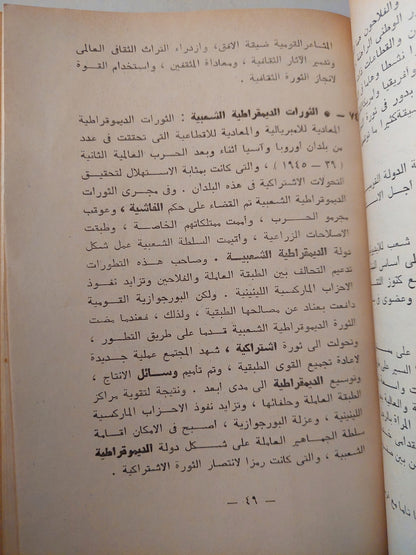 المشاعر القومية ضيقة الافق، وازدراء التراث الثقاق العالمى
وتدمير الآثار الثقافية ، ومعاداة المثقفين ، واستخدام القوة
لانجاز الثورة الثقافية .
٧٤ — * الثورات الديمقراطية الشعبية : الثورات الديموقراطية
المعادية للامبريالية والمعادية للاقطاعية التى تحققت فى عدد
من بلدان اوروبا وآسيا اثناء وبعد الحرب العالمية الثانية
( ٣٩ — ١٩٤٥ ) ، والتى كانت بمثابة الاستهلال لتحقيق
التحولات الاشتراكية فى هذه البلدان . وفى مجرى الثورات
الديموقراطية الشعبية تم القضاء على حكم الفاشية ، وعوقب
مجرمو الحرب ، وأممت ممتلكاتهم الخاصة ، وطبقت
الاصلاحات الزراعية ، وأقيمت السلطة الشعبية على شكل
دولة الديمقراطية الشعبية . وصاحب هذه التطورات
تدعيم التحالف بين الطبقة العاملة والفلاحين وتزايد نفوذ
الاحزاب الماركسية اللينينية . ولكن البورجوازية القومية
دافعت بعناد عن مصالحها الطبقية ، ولذلك ، فعندما مضت
الثورة الديموقراطية الشعبية قدما على طريق التطور ،
وتحولت الى ثورة اشتراكية ، شهد المجتمع عملية جديدة
لاعادة تجميع القوى الطبقية ، وتم تأميم وسائل الانتاج ،
وتوسيع الديمقراطية الى مدى ابعد . ونتيجة لتقوية مراكز
الطبقة العاملة وحلفائها ، وتزايد نفوذ الاحزاب الماركسية
اللينينية ، وعزلة البورجوازية ، اصبح فى الامكان اقامة
سلطة الجماهير العاملة على شكل دولة الديموقراطية
الشعبية ، والتى كانت رمزا لانتصار الثورة الاشتراكية .
— ٤٩ —